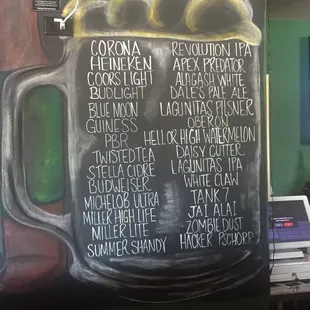 CORONA
HEINEKEN
COORS LIGHT
BUDLIGHT
BLUE MOON
GUINESS
PBR
TWISTEDTEA
STELLA CIDRE
BUDWEISER
MICHELOB ULTRA
MILLER HIGH LIFE
MILLER LITE
SUMMER SHANDY
REVOLUTION IPA
APEX PREDATOR
ALLAGASH WHITE
DALE'S PALE ALE
LAGUNITAS PILSNER
OBERON
HELL OR HIGH WATERMELON
DAISY CUTTER
LAGUNITAS IPA
WHITE CLAW
TANK 7
JAI ALAI
ZOMBIE DUST
HACKER PSCHORR